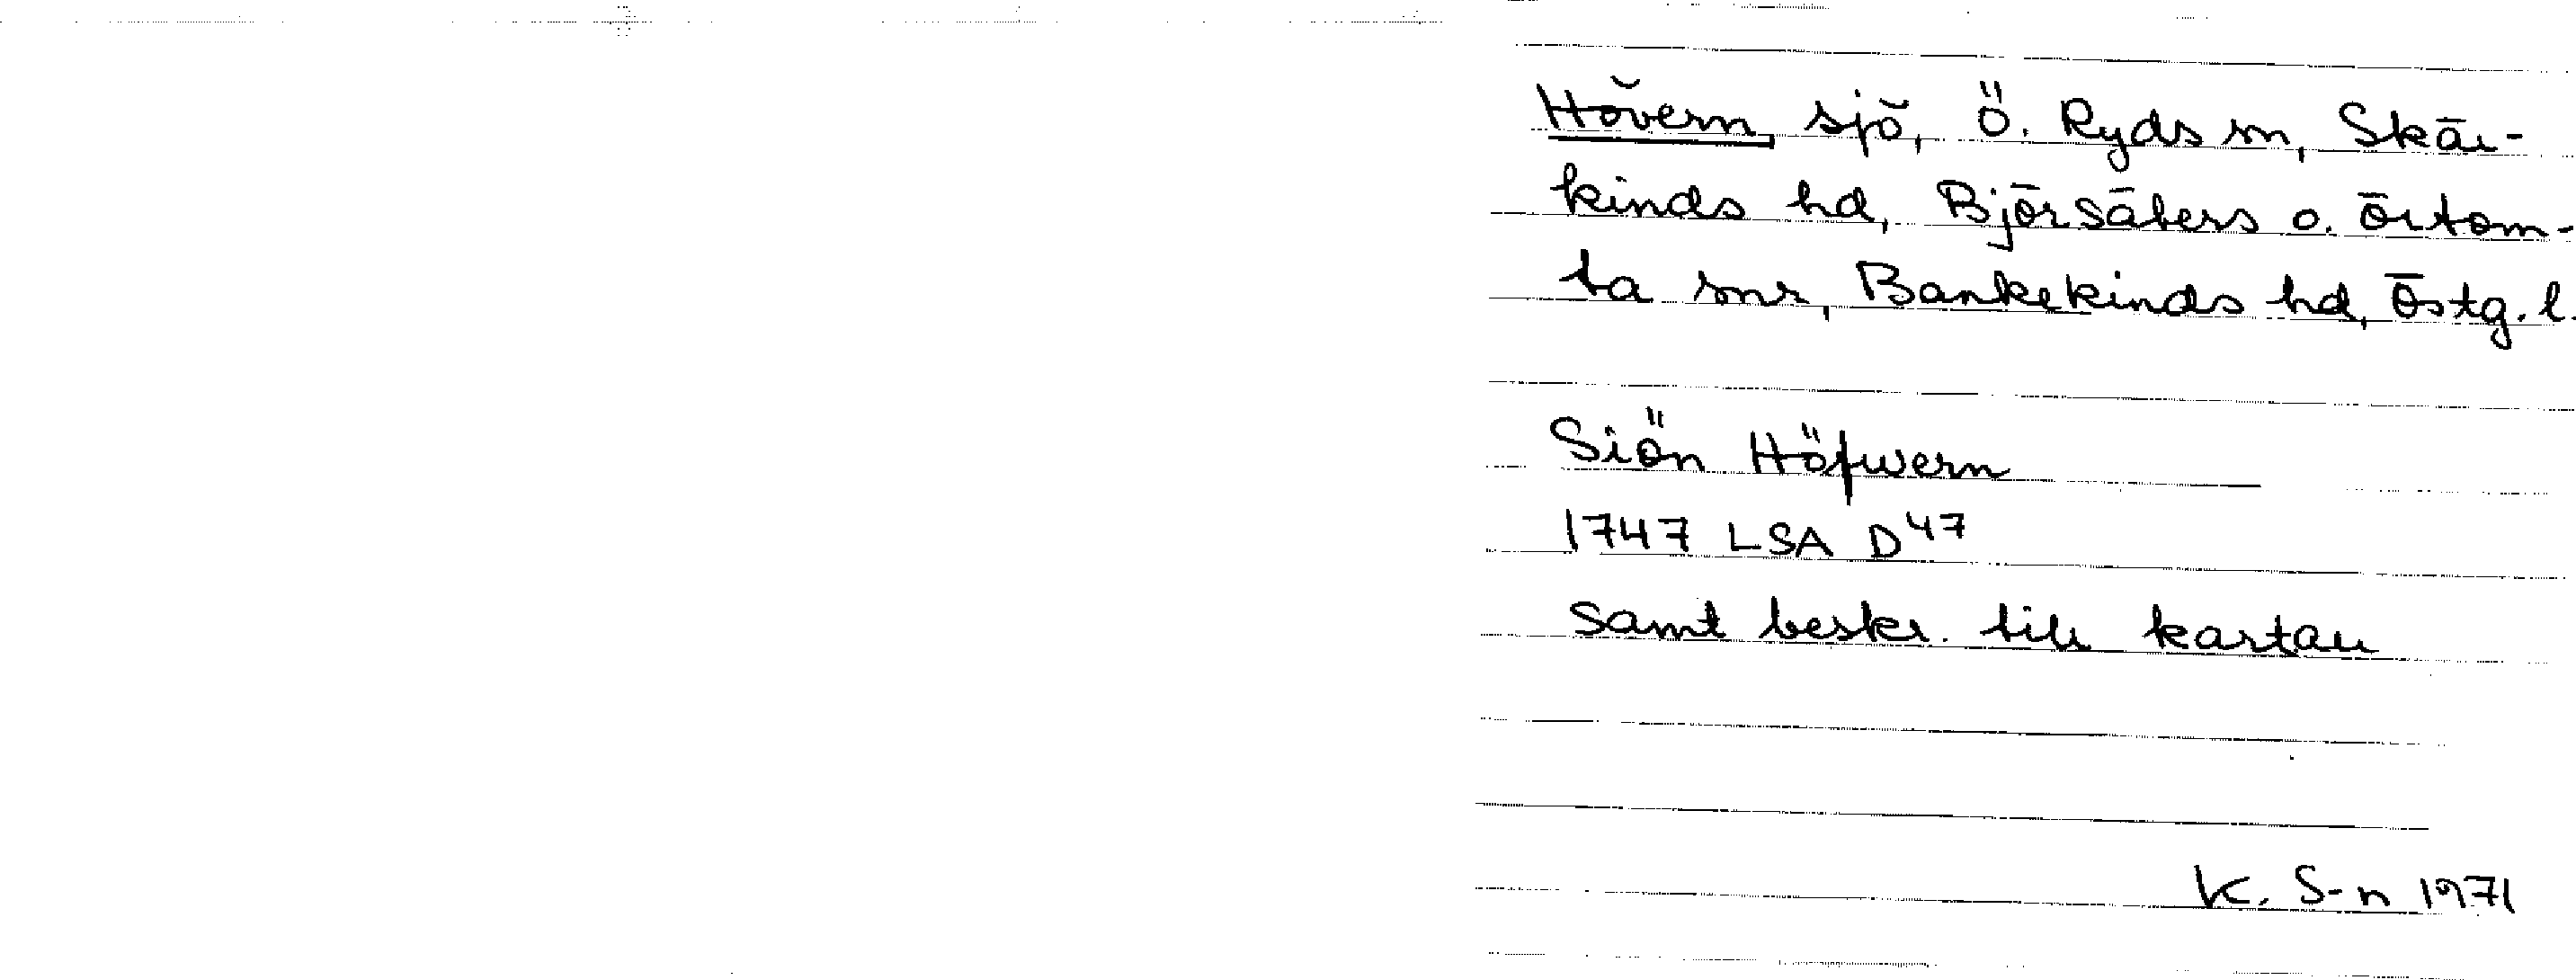 Hövern, sjö, Ö. Ryds sn, Skär-
kinds hd, Björsäters o. Örtom-
ta snr, Bankekinds hd, Östg. l.
Siön Höfwern
1747 LSA D⁴⁷
samt beskr. till kartan
K. S-n 1971